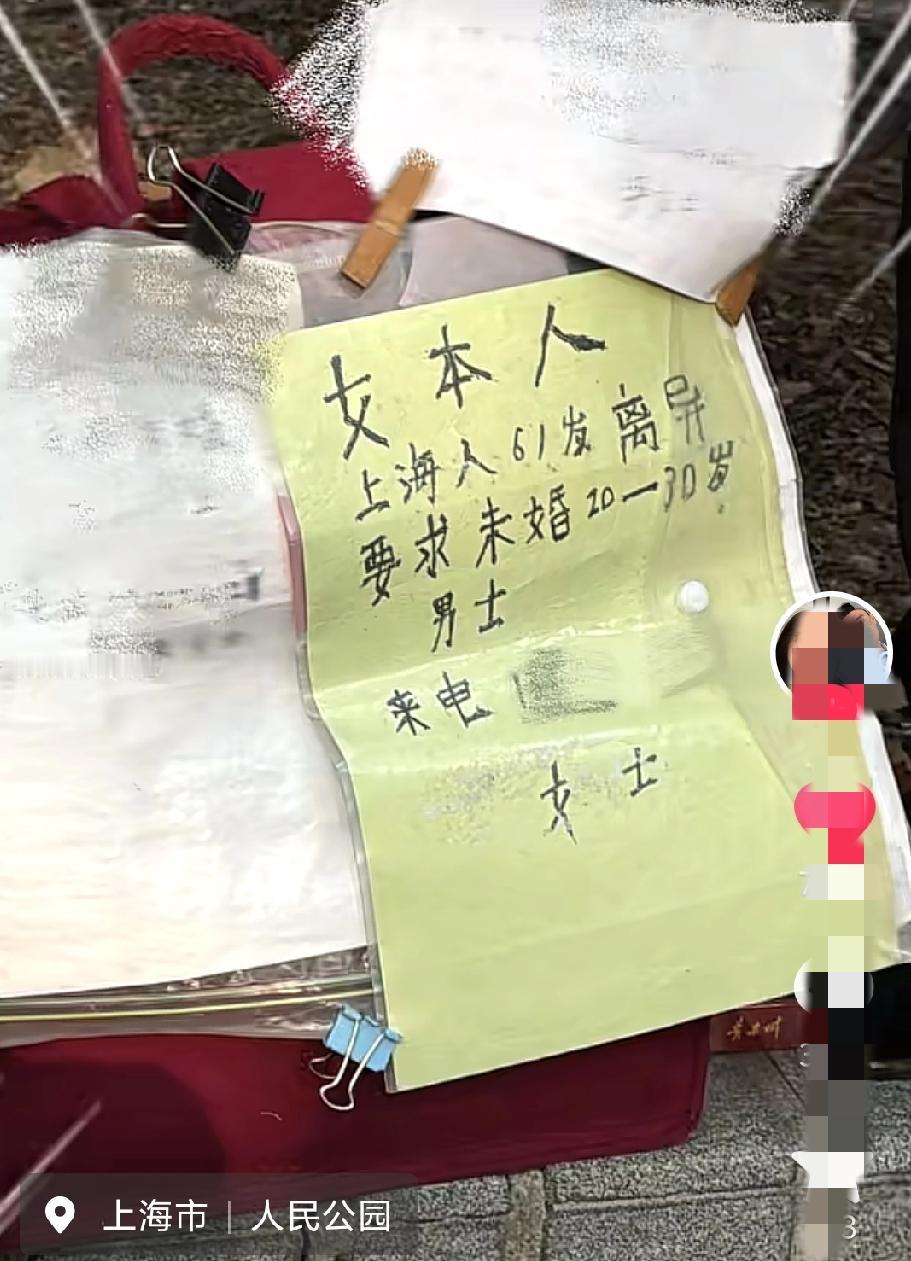 女本人
上海人61岁离异
要求未婚20一30岁
男士
来电
女士
上海市 | 人民公园
3